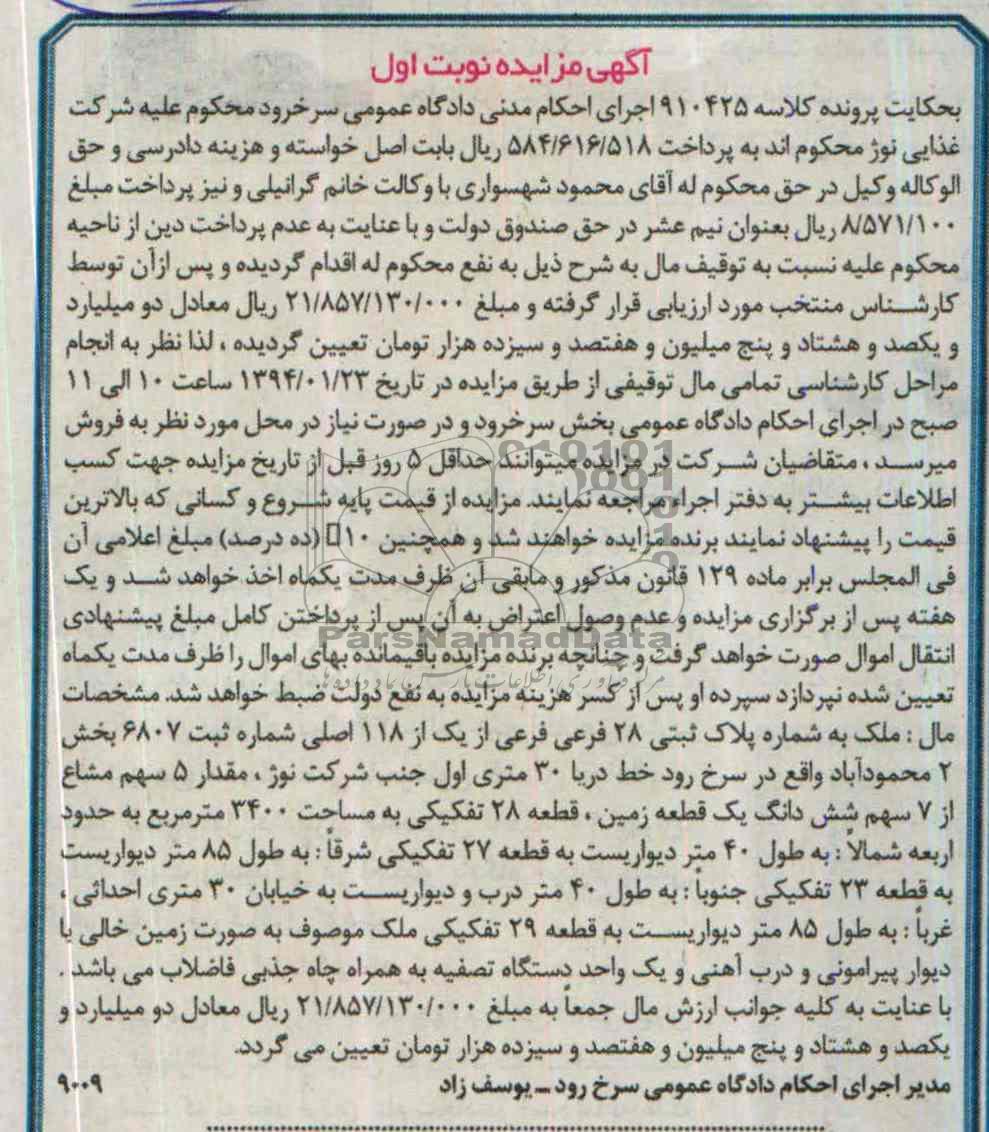 آگهی مزایده نوبت اول
بحکایت پرونده کلاسه ۹۱۰۴۲۵ اجرای احکام مدنی دادگاه عمومی سرخرود محکوم علیه شرکت
غذایی نوژ محکوم اند به پرداخت ۵۸۴/۶۱۶/۵۱۸ ریال بابت اصل خواسته و هزینه دادرسی و حق
الوکاله وکیل در حق محکوم له آقای محمود شهسواری با وکالت خانم گرانیلی و نیز پرداخت مبلغ
۸/۵۷۱/۱۰۰ ریال بعنوان نیم عشر در حق صندوق دولت و با عنایت به عدم پرداخت دین از ناحیه
محکوم علیه نسبت به توقیف مال به شرح ذیل به نفع محکوم له اقدام گردیده و پس ازآن توسط
کارشناس منتخب مورد ارزیابی قرار گرفته و مبلغ ۲۱/۸۵۷/۱۳۰/۰۰۰ ریال معادل دو میلیارد
و یکصد و هشتاد و پنج میلیون و هفتصد و سیزده هزار تومان تعیین گردیده ، لذا نظر به انجام
مراحل کارشناسی تمامی مال توقیفی از طریق مزایده در تاریخ ۱۳۹۴/۰۱/۲۳ ساعت ۱۰ الی ۱۱
صبح در اجرای احکام دادگاه عمومی بخش سرخرود و در صورت نیاز در محل مورد نظر به فروش
میرسد ، متقاضیان شرکت در مزایده میتوانند حداقل ۵ روز قبل از تاریخ مزایده جهت کسب
اطلاعات بیشتر به دفتر اجراء مراجعه نمایند. مزایده از قیمت پایه شروع و کسانی که بالاترین
قیمت را پیشنهاد نمایند برنده مزایده خواهند شد و همچنین ۱۰□ (ده درصد) مبلغ اعلامی آن
فی المجلس برابر ماده ۱۲۹ قانون مذکور و مابقی آن ظرف مدت یکماه اخذ خواهد شد و یک
هفته پس از برگزاری مزایده و عدم وصول اعتراض به آن پس از پرداختن کامل مبلغ پیشنهادی
انتقال اموال صورت خواهد گرفت و چنانچه برنده مزایده باقیمانده بهای اموال را ظرف مدت یکماه
تعیین شده نپردازد سپرده او پس از کسر هزینه مزایده به نفع دولت ضبط خواهد شد. مشخصات
مال : ملک به شماره پلاک ثبتی ۲۸ فرعی فرعی از یک از ۱۱۸ اصلی شماره ثبت ۶۸۰۷ بخش
۲ محمودآباد واقع در سرخ رود خط دریا ۳۰ متری اول جنب شرکت نوژ ، مقدار ۵ سهم مشاع
از ۷ سهم شش دانگ یک قطعه زمین ، قطعه ۲۸ تفکیکی به مساحت ۳۴۰۰ مترمربع به حدود
اربعه شمالاً : به طول ۴۰ متر دیواریست به قطعه ۲۷ تفکیکی شرقاً : به طول ۸۵ متر دیواریست
به قطعه ۲۳ تفکیکی جنوباً : به طول ۴۰ متر درب و دیواریست به خیابان ۳۰ متری احداثی ،
غرباً : به طول ۸۵ متر دیواریست به قطعه ۲۹ تفکیکی ملک موصوف به صورت زمین خالی با
دیوار پیرامونی و درب آهنی و یک واحد دستگاه تصفیه به همراه چاه جذبی فاضلاب می باشد .
با عنایت به کلیه جوانب ارزش مال جمعاً به مبلغ ۲۱/۸۵۷/۱۳۰/۰۰۰ ریال معادل دو میلیارد و
یکصد و هشتاد و پنج میلیون و هفتصد و سیزده هزار تومان تعیین می گردد.
مدیر اجرای احکام دادگاه عمومی سرخ رود ـ یوسف زاد
۹۰۰۹
ParsNamadData